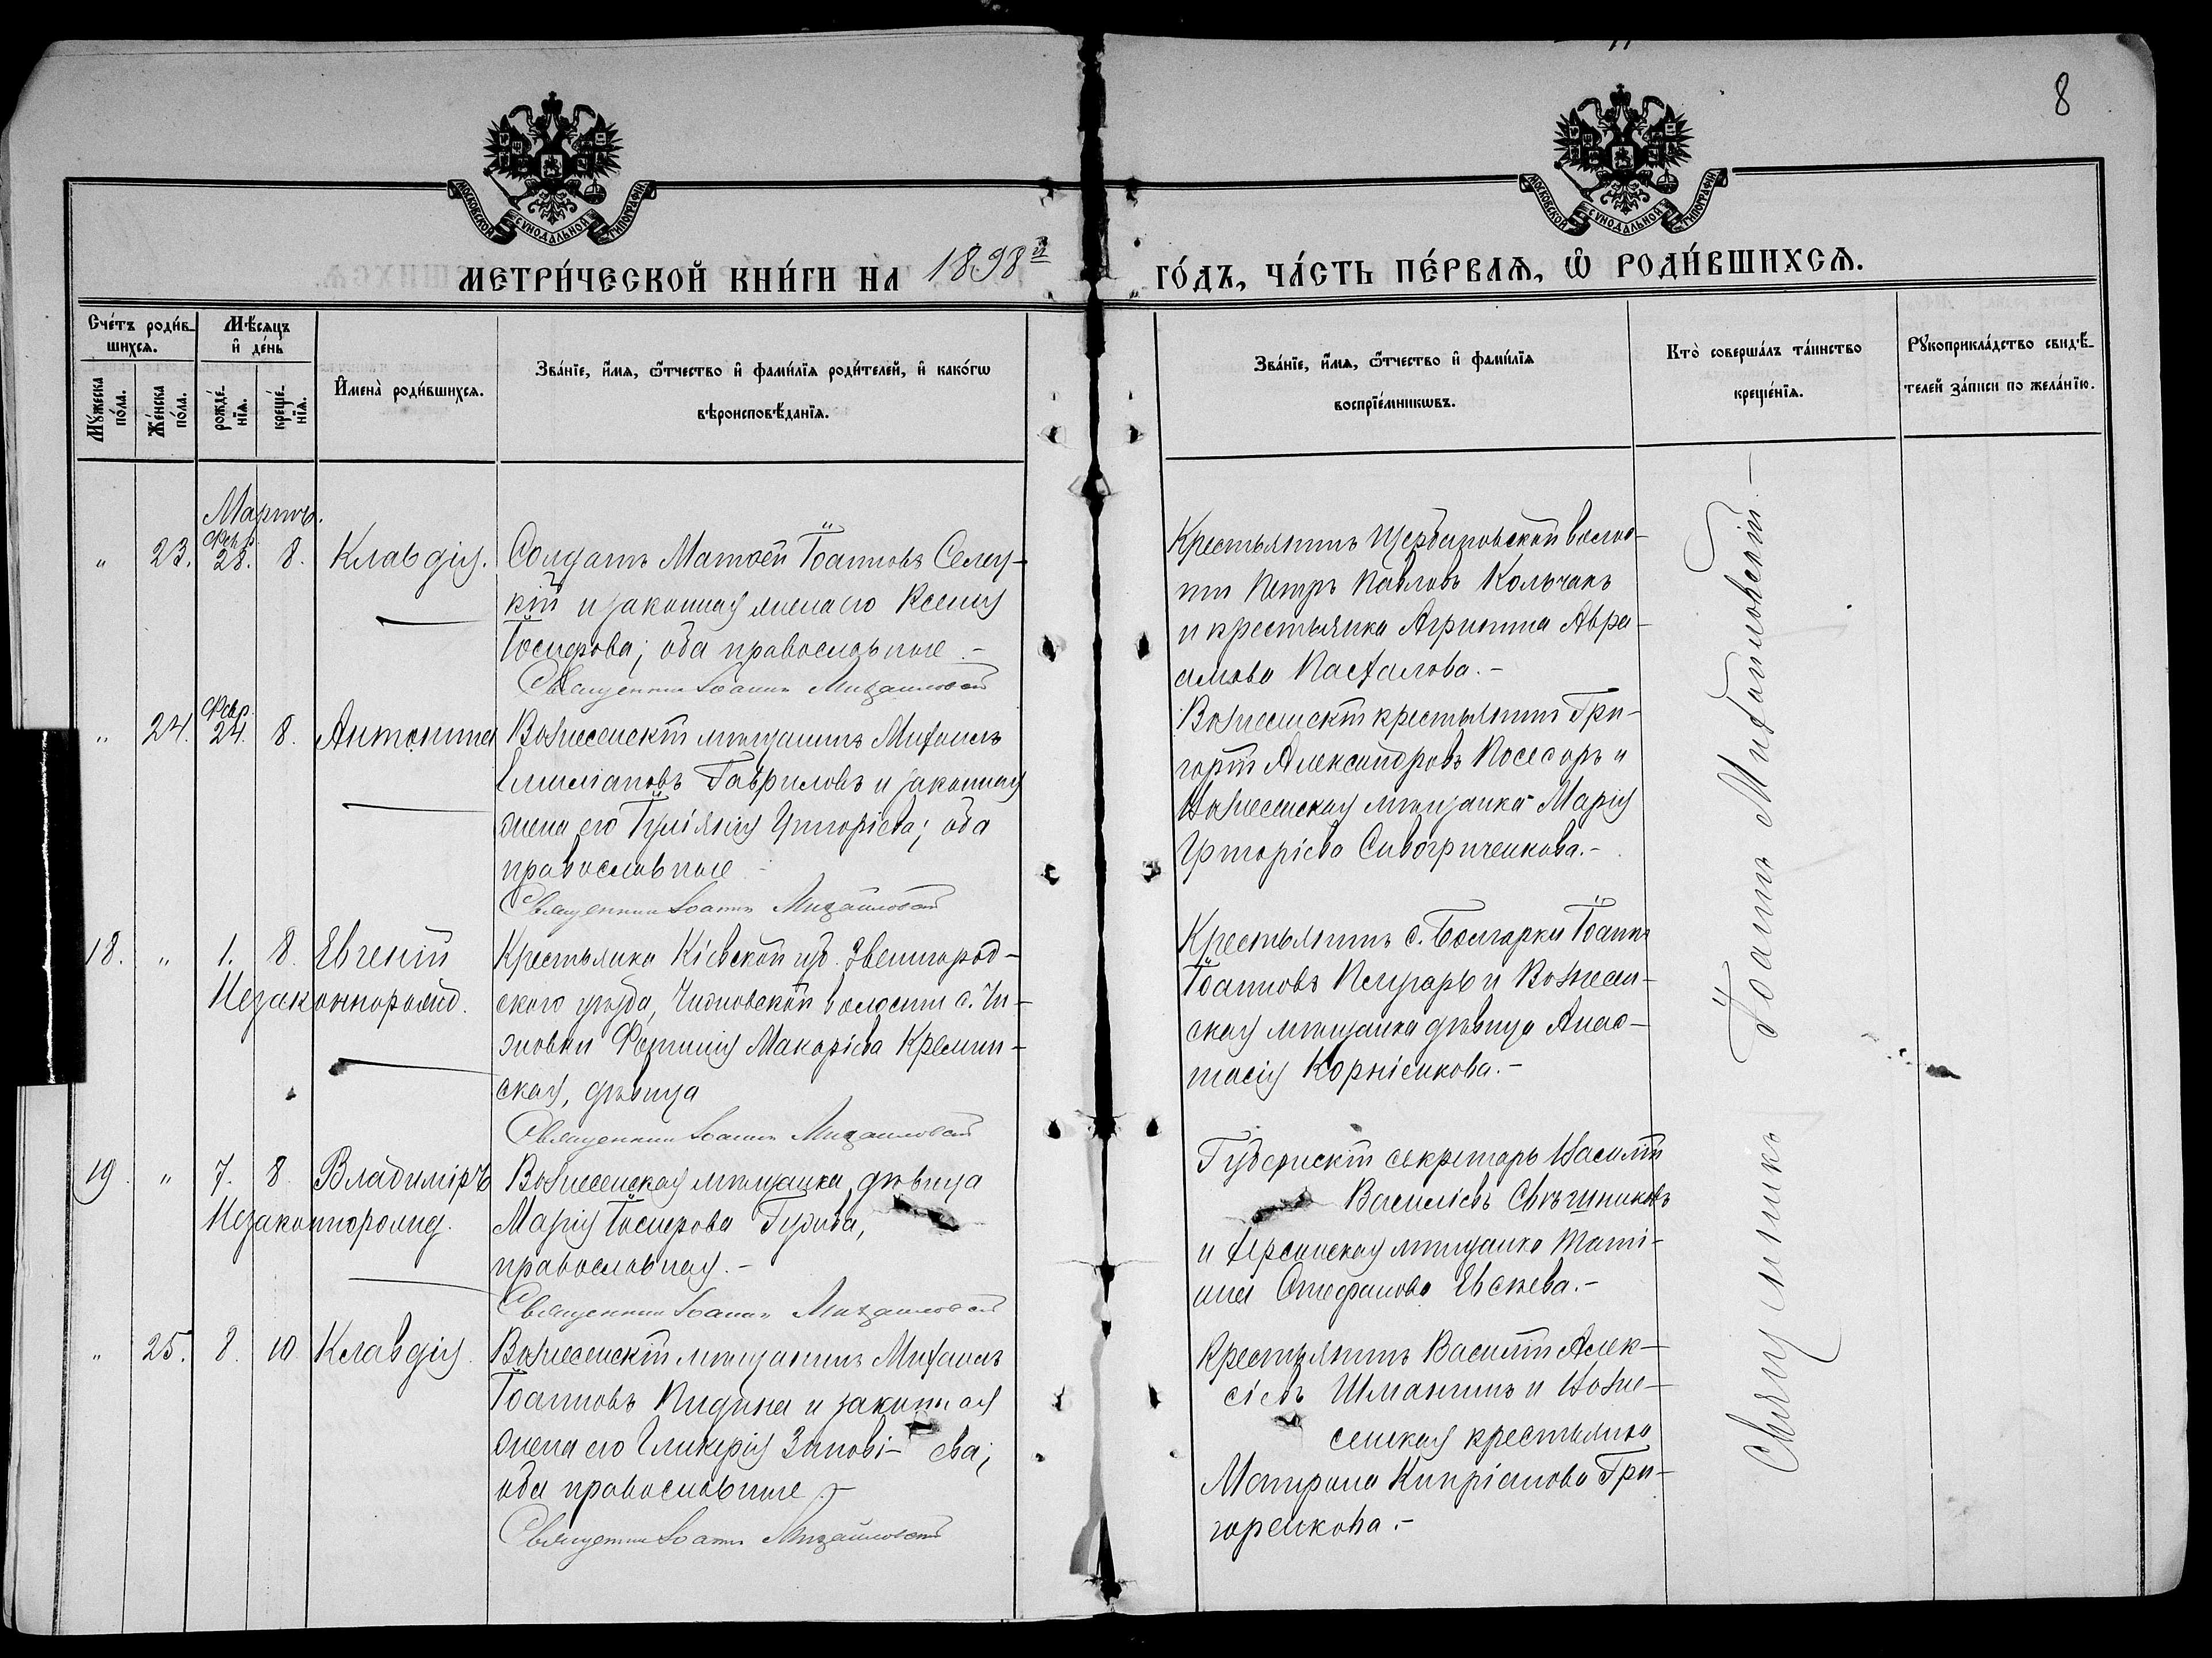 8
МОСКОВСКОЙ СѴНОДАЛЬНОЙ ТИПОГРАФІИ
МОСКОВСКОЙ СѴНОДАЛЬНОЙ ТИПОГРАФІИ
МЕТРИ́ЧЕСКОЙ КНИ́ГИ НА 1898й ГО́ДЪ, ЧА́СТЬ ПЕ́РВАѦ, Ѡ҃ РОДИ́ВШИХСѦ.
Сче́тъ роди́в-
шихсѧ.
Мѣ́сѧцъ
и҆ де́нь
Мꙋ́жеска
по́ла.
Же́нска
по́ла.
рожде́-
нїѧ.
креще́-
нїѧ.
И҆мена̀ роди́вшихсѧ.
Зва́нїе, и҆́мѧ, ѻ҆́тчество и҆ фами́лїѧ роди́телей, и҆ како́гѡ
вѣроисповѣ́данїѧ.
Зва́нїе, и҆́мѧ, ѻ҆́тчество и҆ фами́лїѧ
воспрїе́мникѡвъ.
Кто̀ соверша́лъ та́инство
креще́нїѧ.
Рꙋкоприкла́дство свидѣ́-
телей за́писи по жела́нїю.
Мартъ.
" 23. Февр. 28. 8. Клавдія.
Солдатъ Матѳей Іоанновъ Селец-
кій и законная жена его Ксенія
Іосифова; оба православные.-
Священник Іоаннъ Михайловскій
Крестьянинъ Щербановской волос-
ти Петръ Павловъ Кольчакъ
и крестьянка Агрипина Авра-
амова Пасхалова.-
" 24. Февр. 24. 8. Антонина
Вознесенскій мѣщанинъ Михаилъ
Емиліановъ Гавриловъ и законная
жена его Іуліанія Григоріева; оба
православные.-
Священник Іоаннъ Михайловскій
Вознесенскій крестьянинъ Гри-
горій Александровъ Поседоръ и
Вознесенская мѣщанка Марія
Григоріева Сивогриченкова.-
18. " 1. 8. Евгеній
Незаконнорожд.
Крестьянка Кіевской губ. Звенигород-
ского уѣзда, Чижовской волости с. Чи-
жовки Фотинія Макаріева Кремин-
ская, дѣвица
Священник Іоаннъ Михайловскій
Крестьянинъ с. Болгарки Іоаннъ
Іоанновъ Плугарь и Вознесен-
ская мѣщанка дѣвица Анас-
тасія Корніенкова.-
19. " 7. 8. Владиміръ
Незаконнорожд.
Вознесенская мѣщанка, дѣвица
Марія Іосифова Гудива,
православная.-
Священник Іоаннъ Михайловскій
Губернскій секретарь Василій
Василіевъ Свѣчниковъ
и Херсонская мѣщанка Тати-
ана Стефанова Евсѣева.-
" 25. 8. 10. Клавдія.
Вознесенскій мѣщанинъ Михаилъ
Іоанновъ Пидина и законная
жена его Гликерія Зиновіева;
оба православные.-
Священник Іоаннъ Михайловскій
Крестьянинъ Василій Алек-
сіевъ Шмангинъ и Возне-
сенская крестьянка
Матрона Кипріанова Гри-
горенкова.-
Священникъ Іоаннъ Михайловскій.-